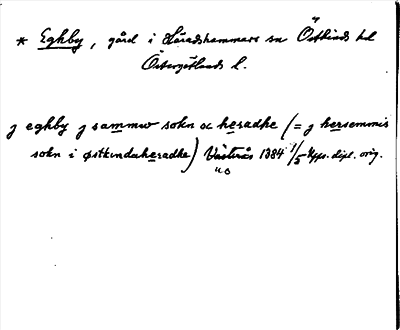 * Eghby, gård i Häradshammars sn Östkinds hd
Östergötlands l.
j eghby j sammw sokn oc heradhe (= j hersemmis
sokn i østkindaheradhe) Västerås 1384 1/5 Upps. dipl. orig.